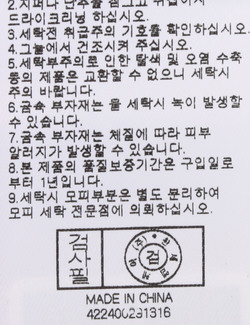 2.지퍼나 단추를 잠그고 뒤집어서
드라이크리닝 하십시오.
3.세탁전 취급주의 기호를 확인하십시오.
4.그늘에서 건조시켜 주십시오.
5.세탁부주의로 인한 탈색 및 오염 수축
등의 제품은 교환할 수 없으니 세탁시
주의 바랍니다.
6.금속 부자재는 물 세탁시 녹이 발생할
수 있습니다.
7.금속 부자재는 체질에 따라 피부
알러지가 발생할 수 있습니다.
8.본 제품의 품질보증기간은 구입일로
부터 1년입니다.
9.세탁시 모피부분은 별도 분리하여
모피 세탁 전문점에 의뢰하십시오.
검사필
(주)
검
MADE IN CHINA
422400291316